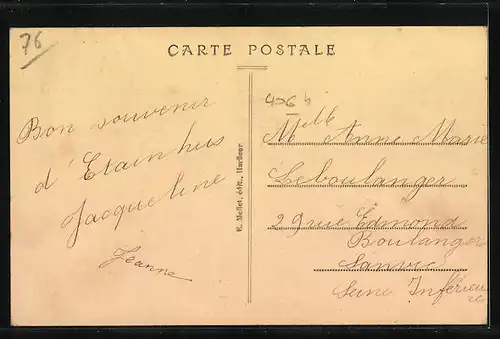 76
CARTE POSTALE
Bon souvenir
d'Etainhus
Jacqueline
Jeanne
E. Mellet, édit., Harfleur
Melle Anne Marie
Leboulanger
29 rue Edmond
Boulanger
Sanvic
Seine Inférieu
re